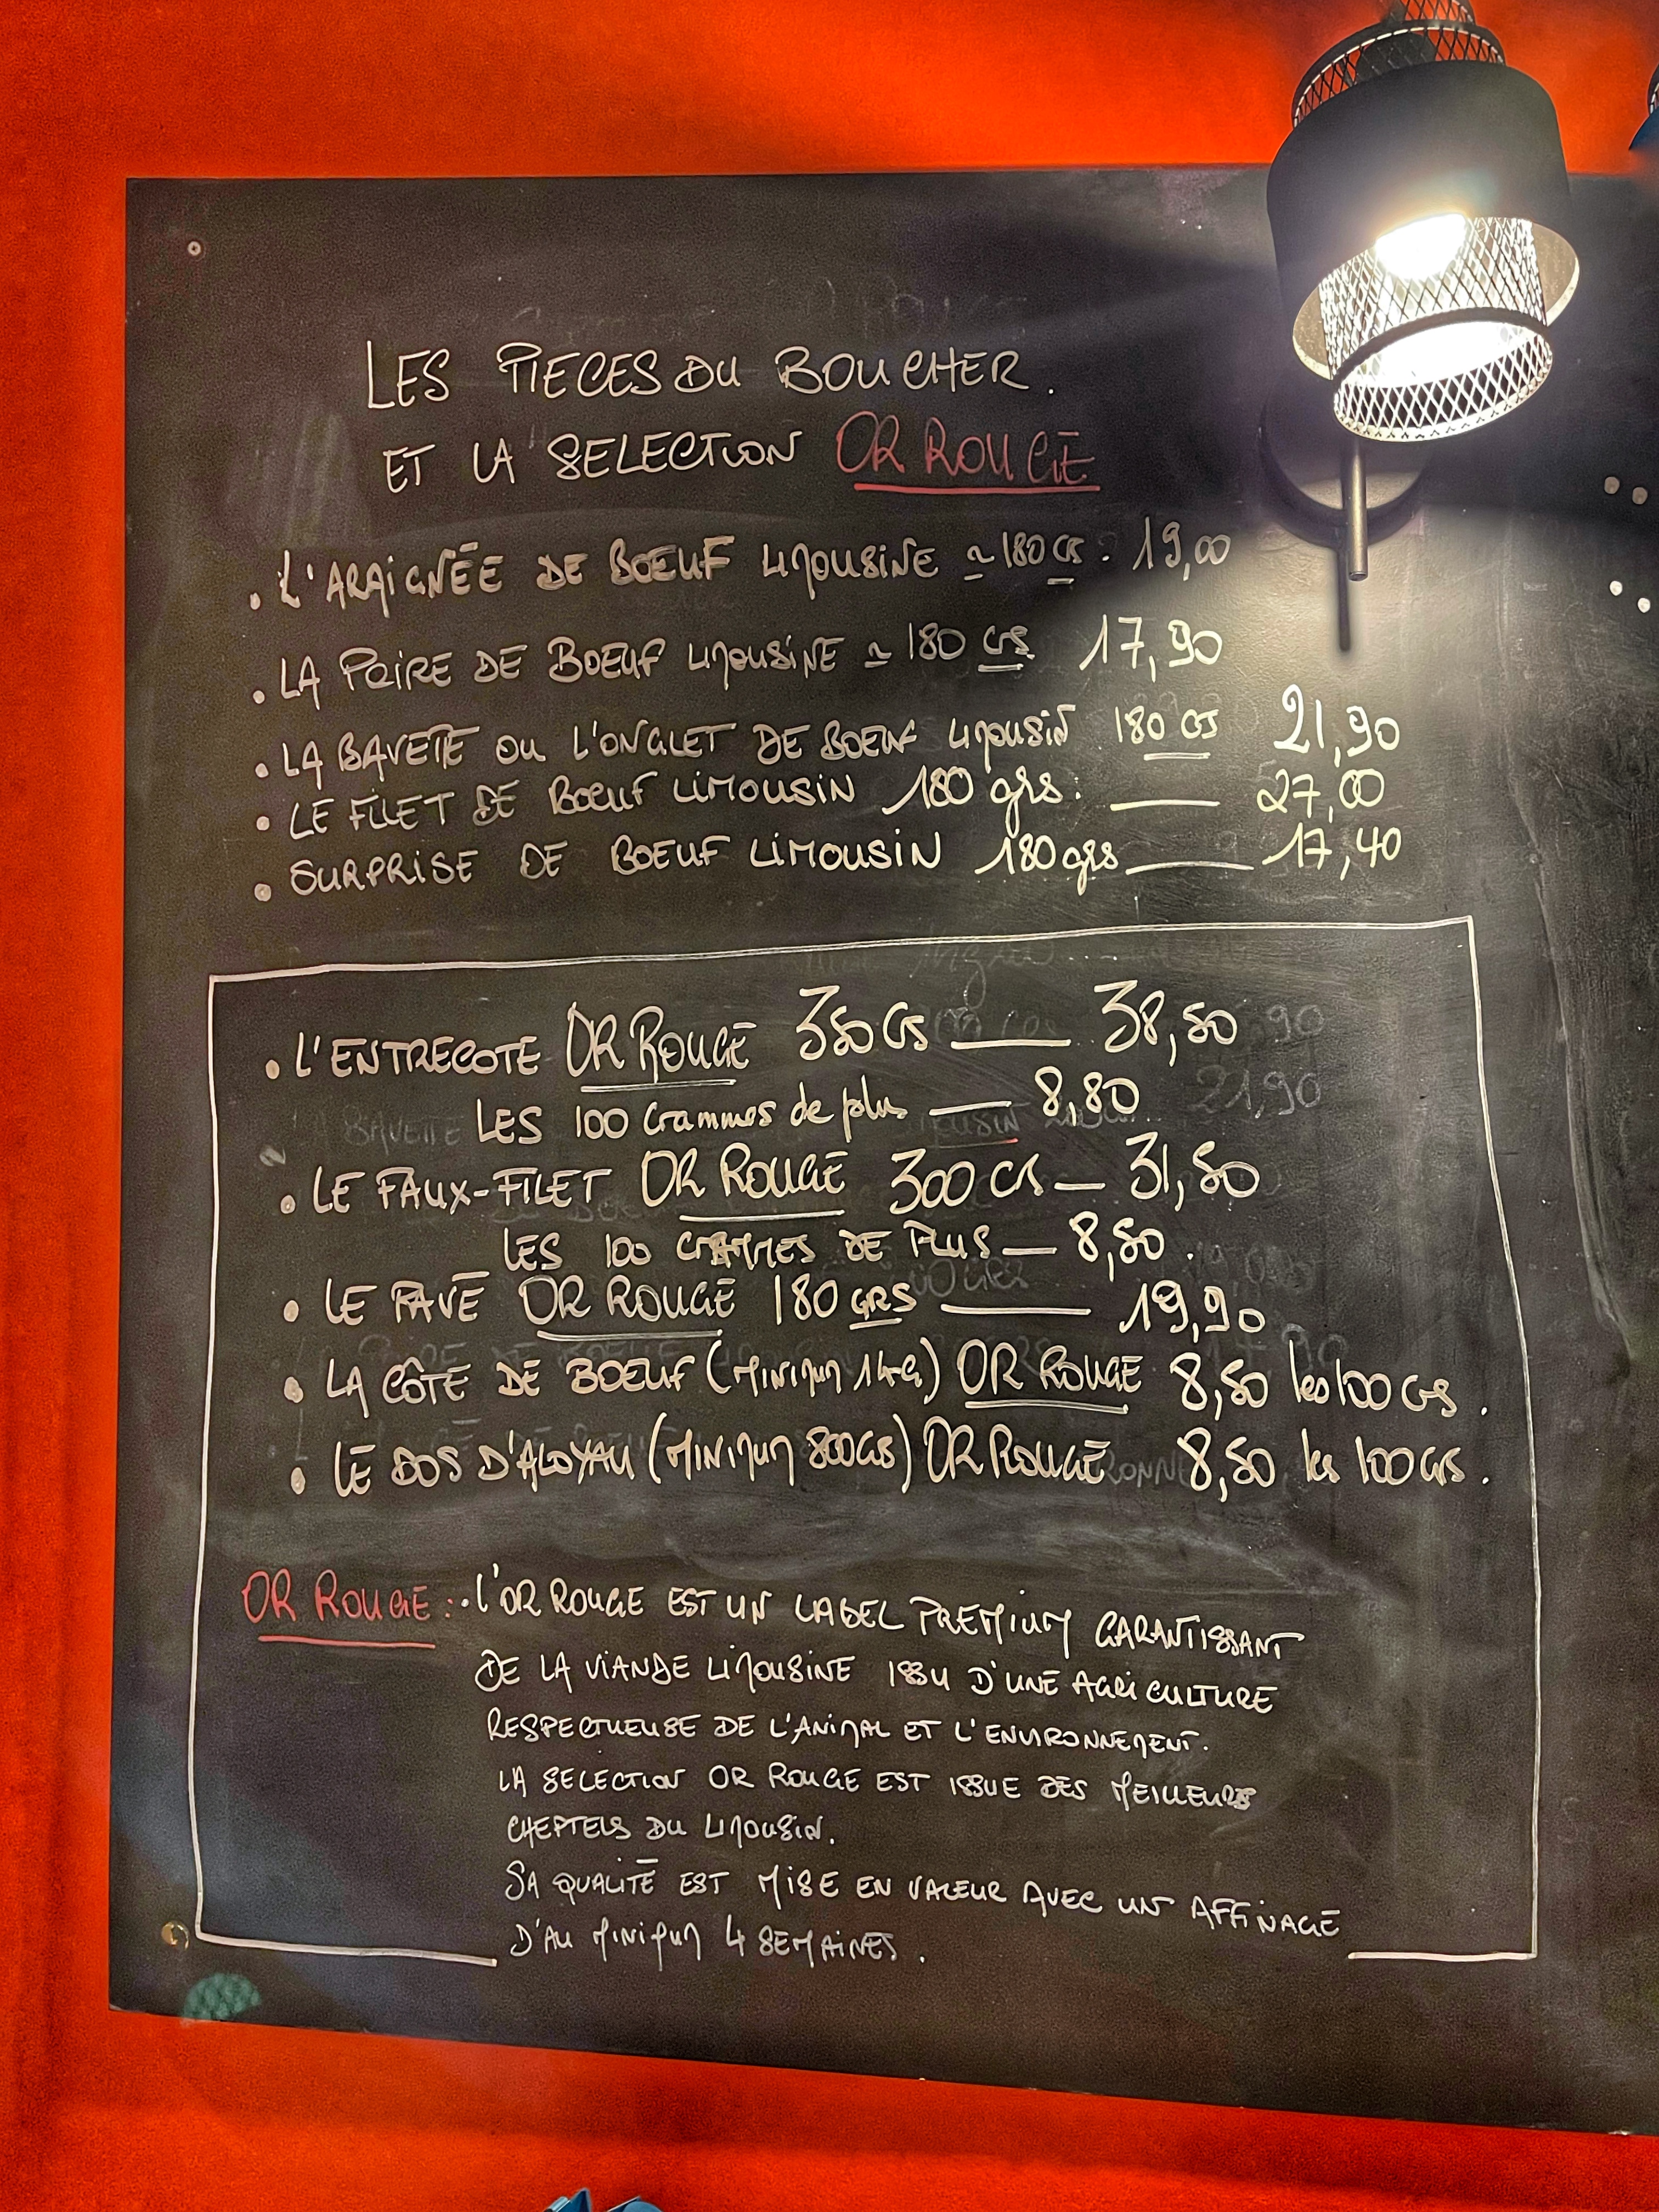 LES PIECES DU BOUCHER.
ET LA SELECTION OR ROUGE
. L'ARAIGNÉE DE BOEUF LIMOUSINE ≃ 180 GS. 19,00
. LA POIRE DE BOEUF LIMOUSINE ≃ 180 GS 17,90
. LA BAVETTE OU L'ONGLET DE BOEUF LIMOUSIN 180 GS 21,90
. LE FILET DE BOEUF LIMOUSIN 180 grs. — 27,00
. SURPRISE DE BOEUF LIMOUSIN 180 grs — 17,40
. L'ENTRECOTE OR ROUGE 350 GS — 38,50
LES 100 Grammes de plus — 8,80
. LE FAUX-FILET OR ROUGE 300 GS — 31,50
LES 100 GRAMMES DE PLUS — 8,50.
. LE PAVÉ OR ROUGE 180 GRS — 19,90
. LA CÔTE DE BOEUF (MINIMUM 1KG) OR ROUGE 8,50 les 100 GS.
. LE DOS D'ALOYAU (MINIMUM 800GS) OR ROUGE 8,50 les 100 GS.
OR ROUGE :. L'OR ROUGE EST UN LABEL PREMIUM GARANTISSANT
DE LA VIANDE LIMOUSINE ISSU D'UNE AGRICULTURE
RESPECTUEUSE DE L'ANIMAL ET L'ENVIRONNEMENT.
LA SELECTION OR ROUGE EST ISSUE DES MEILLEURS
CHEPTELS DU LIMOUSIN.
SA QUALITÉ EST MISE EN VALEUR AVEC UN AFFINAGE
D'AU MINIMUM 4 SEMAINES.